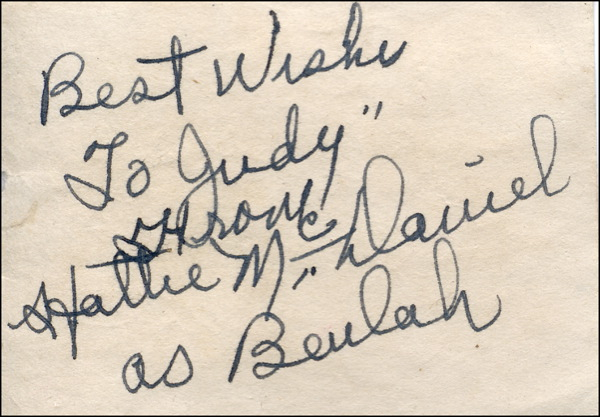 Best Wishes
To Judy"
From
Hattie McDaniel
as "Beulah